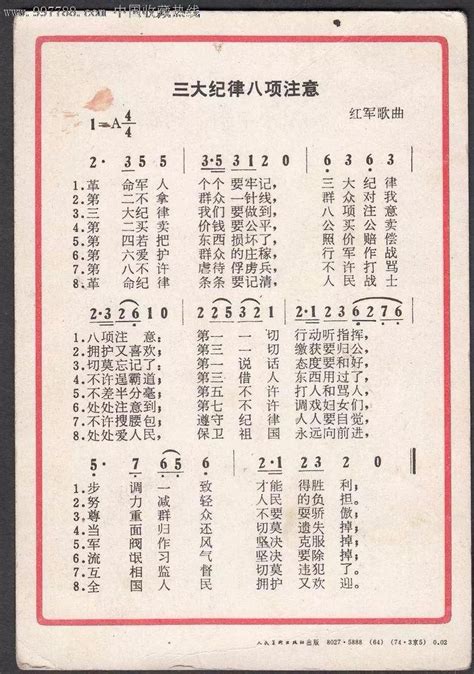 www.997788.com 中国收藏热线
三大纪律八项注意
红军歌曲
1=A 4/4
2· 3 5 5 | 3·5 3 1 2 0 | 6 3 6 3
1.革 命军 人 个个 要牢记, 三 大 纪 律
2.第 二不 拿 群众 一针线, 群 众 对 我
3.三 大纪 律 我们 要做到, 八 项 注 意
4.第 二买 卖 价钱 要公平, 公 买 公 卖
5.第 四若 把 东西 损坏了, 照 价 赔 偿
6.第 六爱 护 群众 的庄稼, 行 军 作 战
7.第 八不 许 虐待 俘虏兵, 不 许 打 骂
8.革 命纪 律 条条 要记清, 人 民 战 士
2·3 2 6 1 0 | 3 1 2 2 | 2·1 2 3 6 2 7 6
1.八项注意; 第 一 一 切 行动听指挥,
2.拥护又喜欢; 第 三 一 切 缴获要归公,
3.切莫忘记了: 第 一 说 话 态度要和好,
4.不许逞霸道; 第 三 借 人 东西用过了,
5.不差半分毫; 第 五 不 许 打人和骂人,
6.处处注意到; 第 七 不 许 调戏妇女们,
7.不许搜腰包; 遵 守 纪 律 人人要自觉,
8.处处爱人民, 保 卫 祖 国 永远向前进,
5· 7 6 5 6 | 2·1 2 3 2 0
1.步 调 一 致 才能 得胜 利;
2.努 力 减 轻 人民 的负 担。
3.尊 重 群 众 不要 耍骄 傲;
4.当 面 归 还 切莫 遗失 掉;
5.军 阀 作 风 坚决 克服 掉;
6.流 氓 习 气 坚决 要除 掉;
7.互 相 监 督 切莫 违犯 了。
8.全 国 人 民 拥护 又欢 迎。
人民美术出版社出版 8027·5888 (64) (74·3京5) 0.02